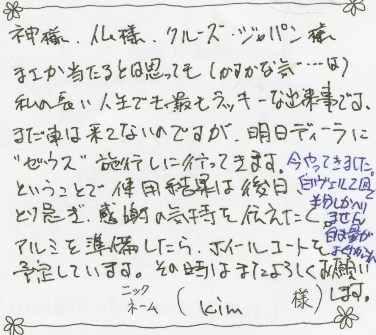 神様、仏様、クルーズ・ジャパン様
まさか当たるとは思っても(かすかな気……は)
私の長い人生でも最もラッキーな出来事です。
まだ車は来てないのですが、明日ディーラに
"ゼウス"施行しに行ってきます。
ということで使用結果は後日、
とり急ぎ、感謝の気持を伝えたく。
アルミを準備したら、ホイールコートを
予定しています。その時はまたよろしくお願い
します。
今やってきました。
白ヴェルで2回
半分しか
ません
ニックネーム (kim 様)